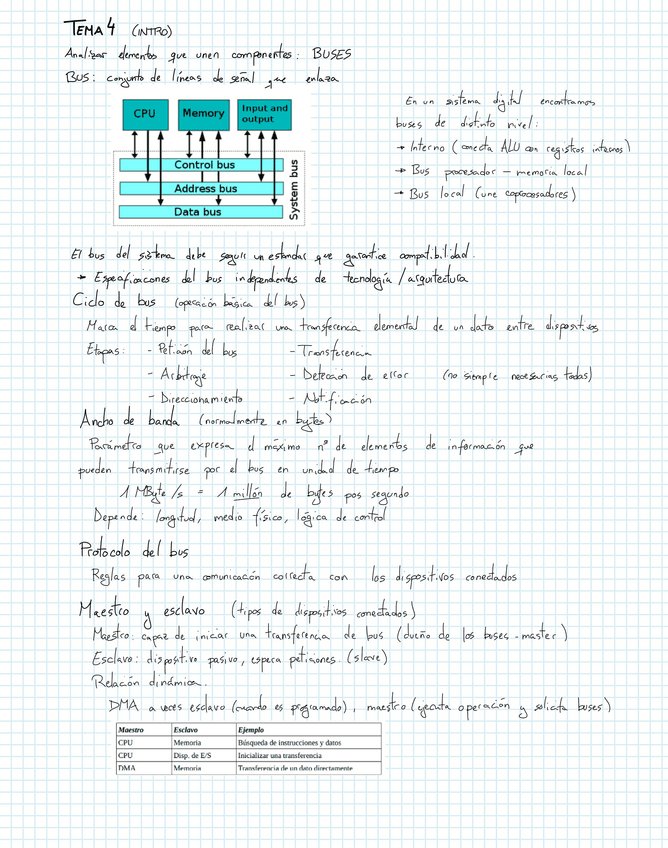 TEMA 4 (INTRO)
Analizar elementos que unen componentes: BUSES
BUS: conjunto de líneas de señal que enlaza
CPU
Memory
Input and
output
Control bus
Address bus
Data bus
System bus
En un sistema digital encontramos
buses de distinto nivel:
→ Interno (conecta ALU con registros internos)
→ Bus procesador - memoria local
→ Bus local (une coprocesadores)
El bus del sistema debe seguir un estándar que garantice compatibilidad.
→ Especificaciones del bus independientes de tecnología/arquitectura
Ciclo de bus (operación básica del bus)
Marca el tiempo para realizar una transferencia elemental de un dato entre dispositivos
Etapas: - Petición del bus - Transferencia
- Arbitraje - Detección de error (no siempre necesarias todas)
- Direccionamiento - Notificación
Ancho de banda (normalmente en bytes)
Parámetro que expresa el máximo nº de elementos de información que
pueden transmitirse por el bus en unidad de tiempo
1 MByte/s = 1 millón de bytes pos segundo
Depende: longitud, medio físico, lógica de control
Protocolo del bus
Reglas para una comunicación correcta con los dispositivos conectados
Maestro y esclavo (tipos de dispositivos conectados)
Maestro: capaz de iniciar una transferencia de bus (dueño de los buses - master)
Esclavo: dispositivo pasivo, espera peticiones. (slave)
Relación dinámica.
DMA a veces esclavo (cuando es programado), maestro (ejecuta operación y solicita buses)
Maestro Esclavo Ejemplo
CPU Memoria Búsqueda de instrucciones y datos
CPU Disp. de E/S Inicializar una transferencia
DMA Memoria Transferencia de un dato directamente